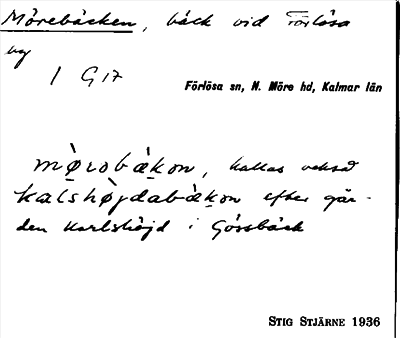 Mörebäcken, bäck vid Förlösa
by
1 G 17
Förlösa sn, N. Möre hd, Kalmar län
mø̀robæ̀kon, kallas också
kalshø̀jdabæ̀kon efter går-
den Karlshöjd i Gössbäck
STIG STJÄRNE 1936